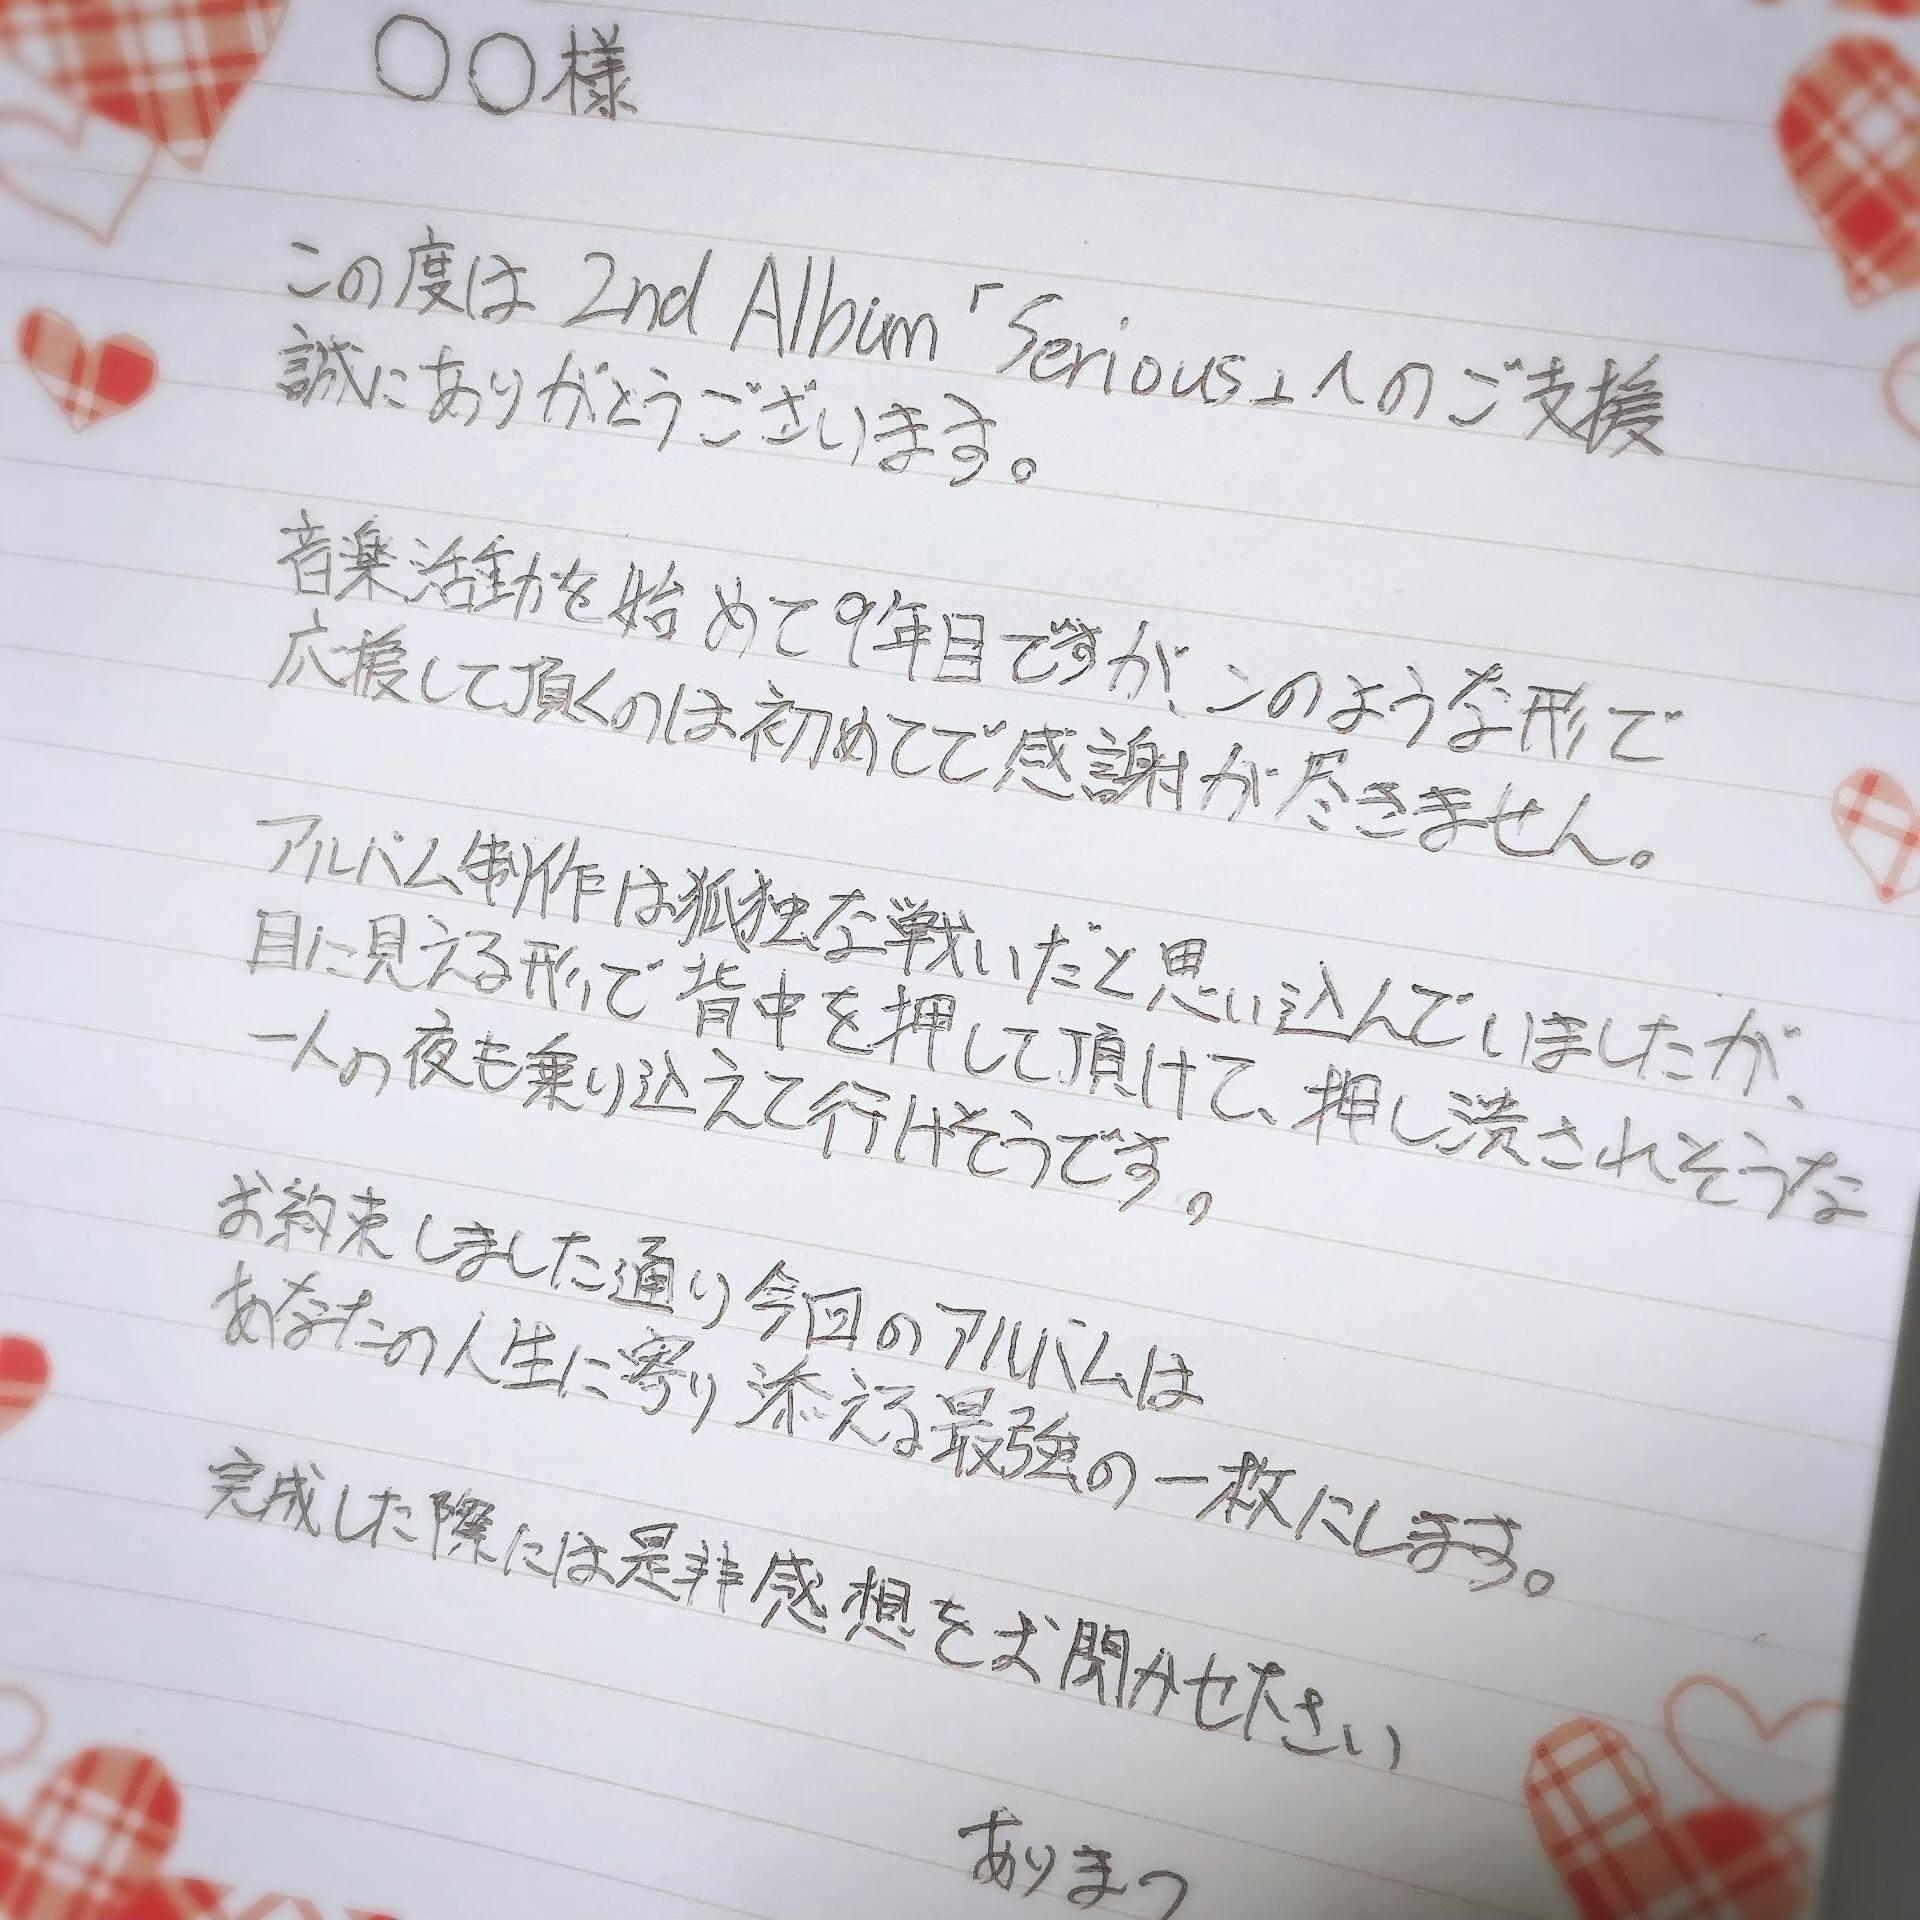 ○○様
この度は 2nd Album「Serious」へのご支援
誠にありがとうございます。
音楽活動を始めて9年目ですが、このような形で
応援して頂くのは初めてで感謝が尽きません。
アルバム制作は孤独な戦いだと思い込んでいましたが、
目に見える形で背中を押して頂けて、押し潰されそうな
一人の夜も乗り込えて行けそうです。
お約束しました通り今回のアルバムは
あなたの人生に寄り添える最強の一枚にします。
完成した際には是非感想をお聞かせださい
ありまつ